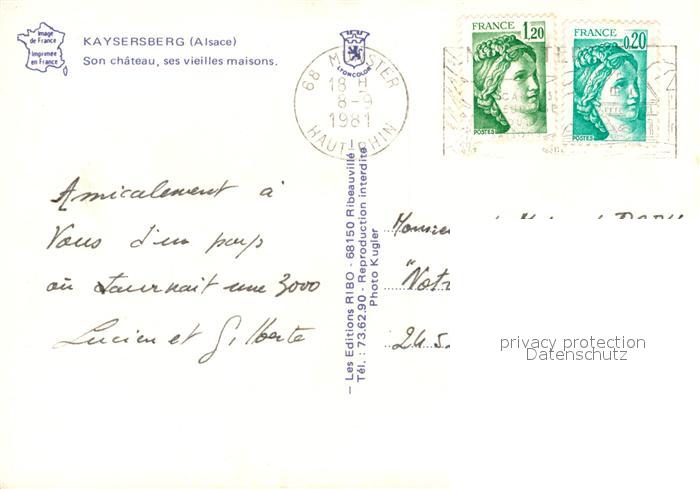 Image
de France
Imprimée
en France
KAYSERSBERG (Alsace)
Son château, ses vieilles maisons.
LYONCOLOR
68 MUNSTER
18 H
8-9
1981
HAUT-RHIN
FRANCE
1,20
POSTES
FRANCE
0,20
POSTES
Amicalement à
Vous d'un pays
où tournait une 3000
Lucien et Gilberte
— Les Editions RIBO - 68150 Ribeauvillé -
Tél. : 73.62.90 - Reproduction interdite
Photo Kugler
Monsieur
"Notr
245
privacy protection
Datenschutz